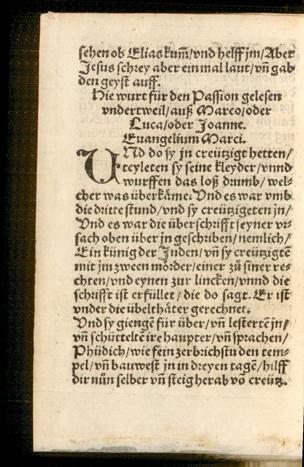 sehen ob Elias kum̃/vnd helff jm/Aber
Jesus schrey aber ein mal laut/vñ gab
den geyst auff.
Hie wurt für den Passion gelesen
vndertweil/auß Marco/oder
Luca/oder Joanne.
Euangelium Marci.
UNd do sy jn creützigt hetten/
teyleten sy seine kleyder/vnnd
wurffen das loß drumb/wel-
cher was überkäme. Vnd es war vmb
die dritte stund/vnd sy creützigeten jn/
Vnd es war die überschrifft seyner vr-
sach oben über jn geschriben/nemlich/
Ein künig der Juden/vñ sy creützigtē
mit jm zween mörder/einer zů siner re-
chten/vnd eynen zur lincken/vnnd die
schrifft ist erfüllet/die do sagt. Er ist
vnder die übelthäter gerechnet.
Vnd sy giengē für über/vñ lestertē jn/
vñ schütteltē ire haupter/vñ sprachen/
Phüdich/wie fein zerbrichstu den tem-
pel/vñ bauwest jn in dreyen tagē/hilff
dir nůn selber vñ steig herab võ creütz.